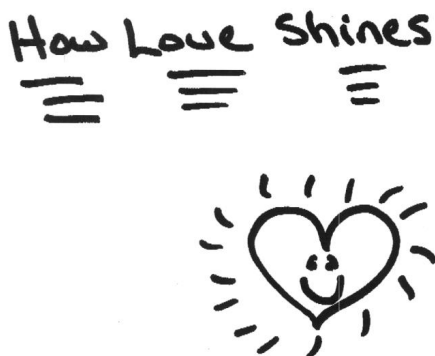 How Love Shines